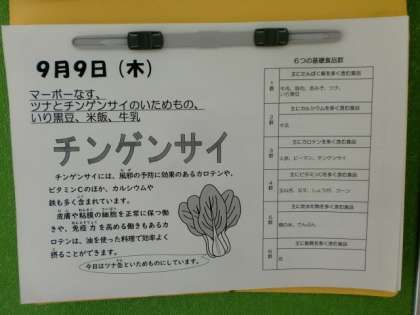 9月9日（木）
マーボーなす、
ツナとチンゲンサイのいためもの、
いり黒豆、米飯、牛乳
チンゲンサイ
チンゲンサイには、風邪の予防に効果のあるカロテンや、
ビタミンCのほか、カルシウムや
鉄も多く含まれています。
皮膚や粘膜の細胞を正常に保つ働
きや、免疫力を高める働きもあるカ
ロテンは、油を使った料理で効率よく
摂ることができます。
今日はツナ缶といためものにしています。
6つの基礎食品群
1群
主にたんぱく質を多く含む食品
牛肉、豚肉、赤みそ、ツナ、
いり黒豆
2群
主にカルシウムを多く含む食品
牛乳
3群
主にカロテンを多く含む食品
人参、ピーマン、チンゲンサイ
4群
主にビタミンCを多く含む食品
玉ねぎ、なす、しょうが、コーン
5群
主に炭水化物を多く含む食品
精白米、でんぷん
6群
主に脂質を多く含む食品
油